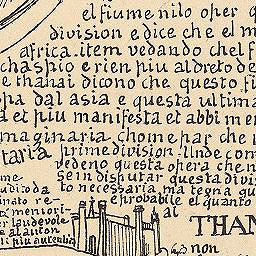 el fiume nilo oper q
division e dice che el m
africa. item vedando chel f
chaspio e rien piu aldreto de
e thanai dicono che questo fi
pa dal asia e questa ultima
a et piu manifesta et abbi men
maginaria chome par che n
tataria prime division. Unde com
vedeno questa opera che n
se in disputar questa divi
to necessaria, ma tegna qu
e probabile el quanto
al
me
udito da
inato re-
memori-
laudevole
al auton
piu autentic
THAN
non